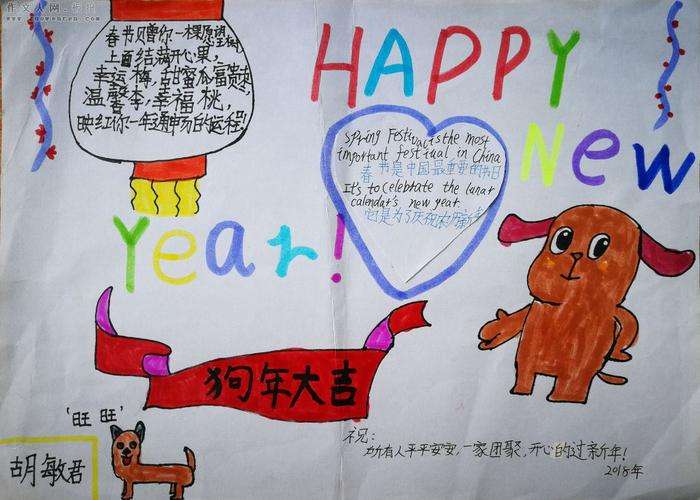 作文人网·书香
www.zuowenren.com
春节只赠你一棵愿望树,
上面结满开心果,
幸运梅,甜蜜瓜富贵枣
温馨李,幸福桃,
映红你一年通畅的运程!
HAPPY
New
Year!
Spring Festival is the most
important festival in China
春节是中国最重要的节日
It's to celebrate the lunar
calendar's new year
它是为了庆祝农历新年
狗年大吉
'旺旺'
胡敏君
祝:
所有人平平安安,一家团聚,开心的过新年!
2018年